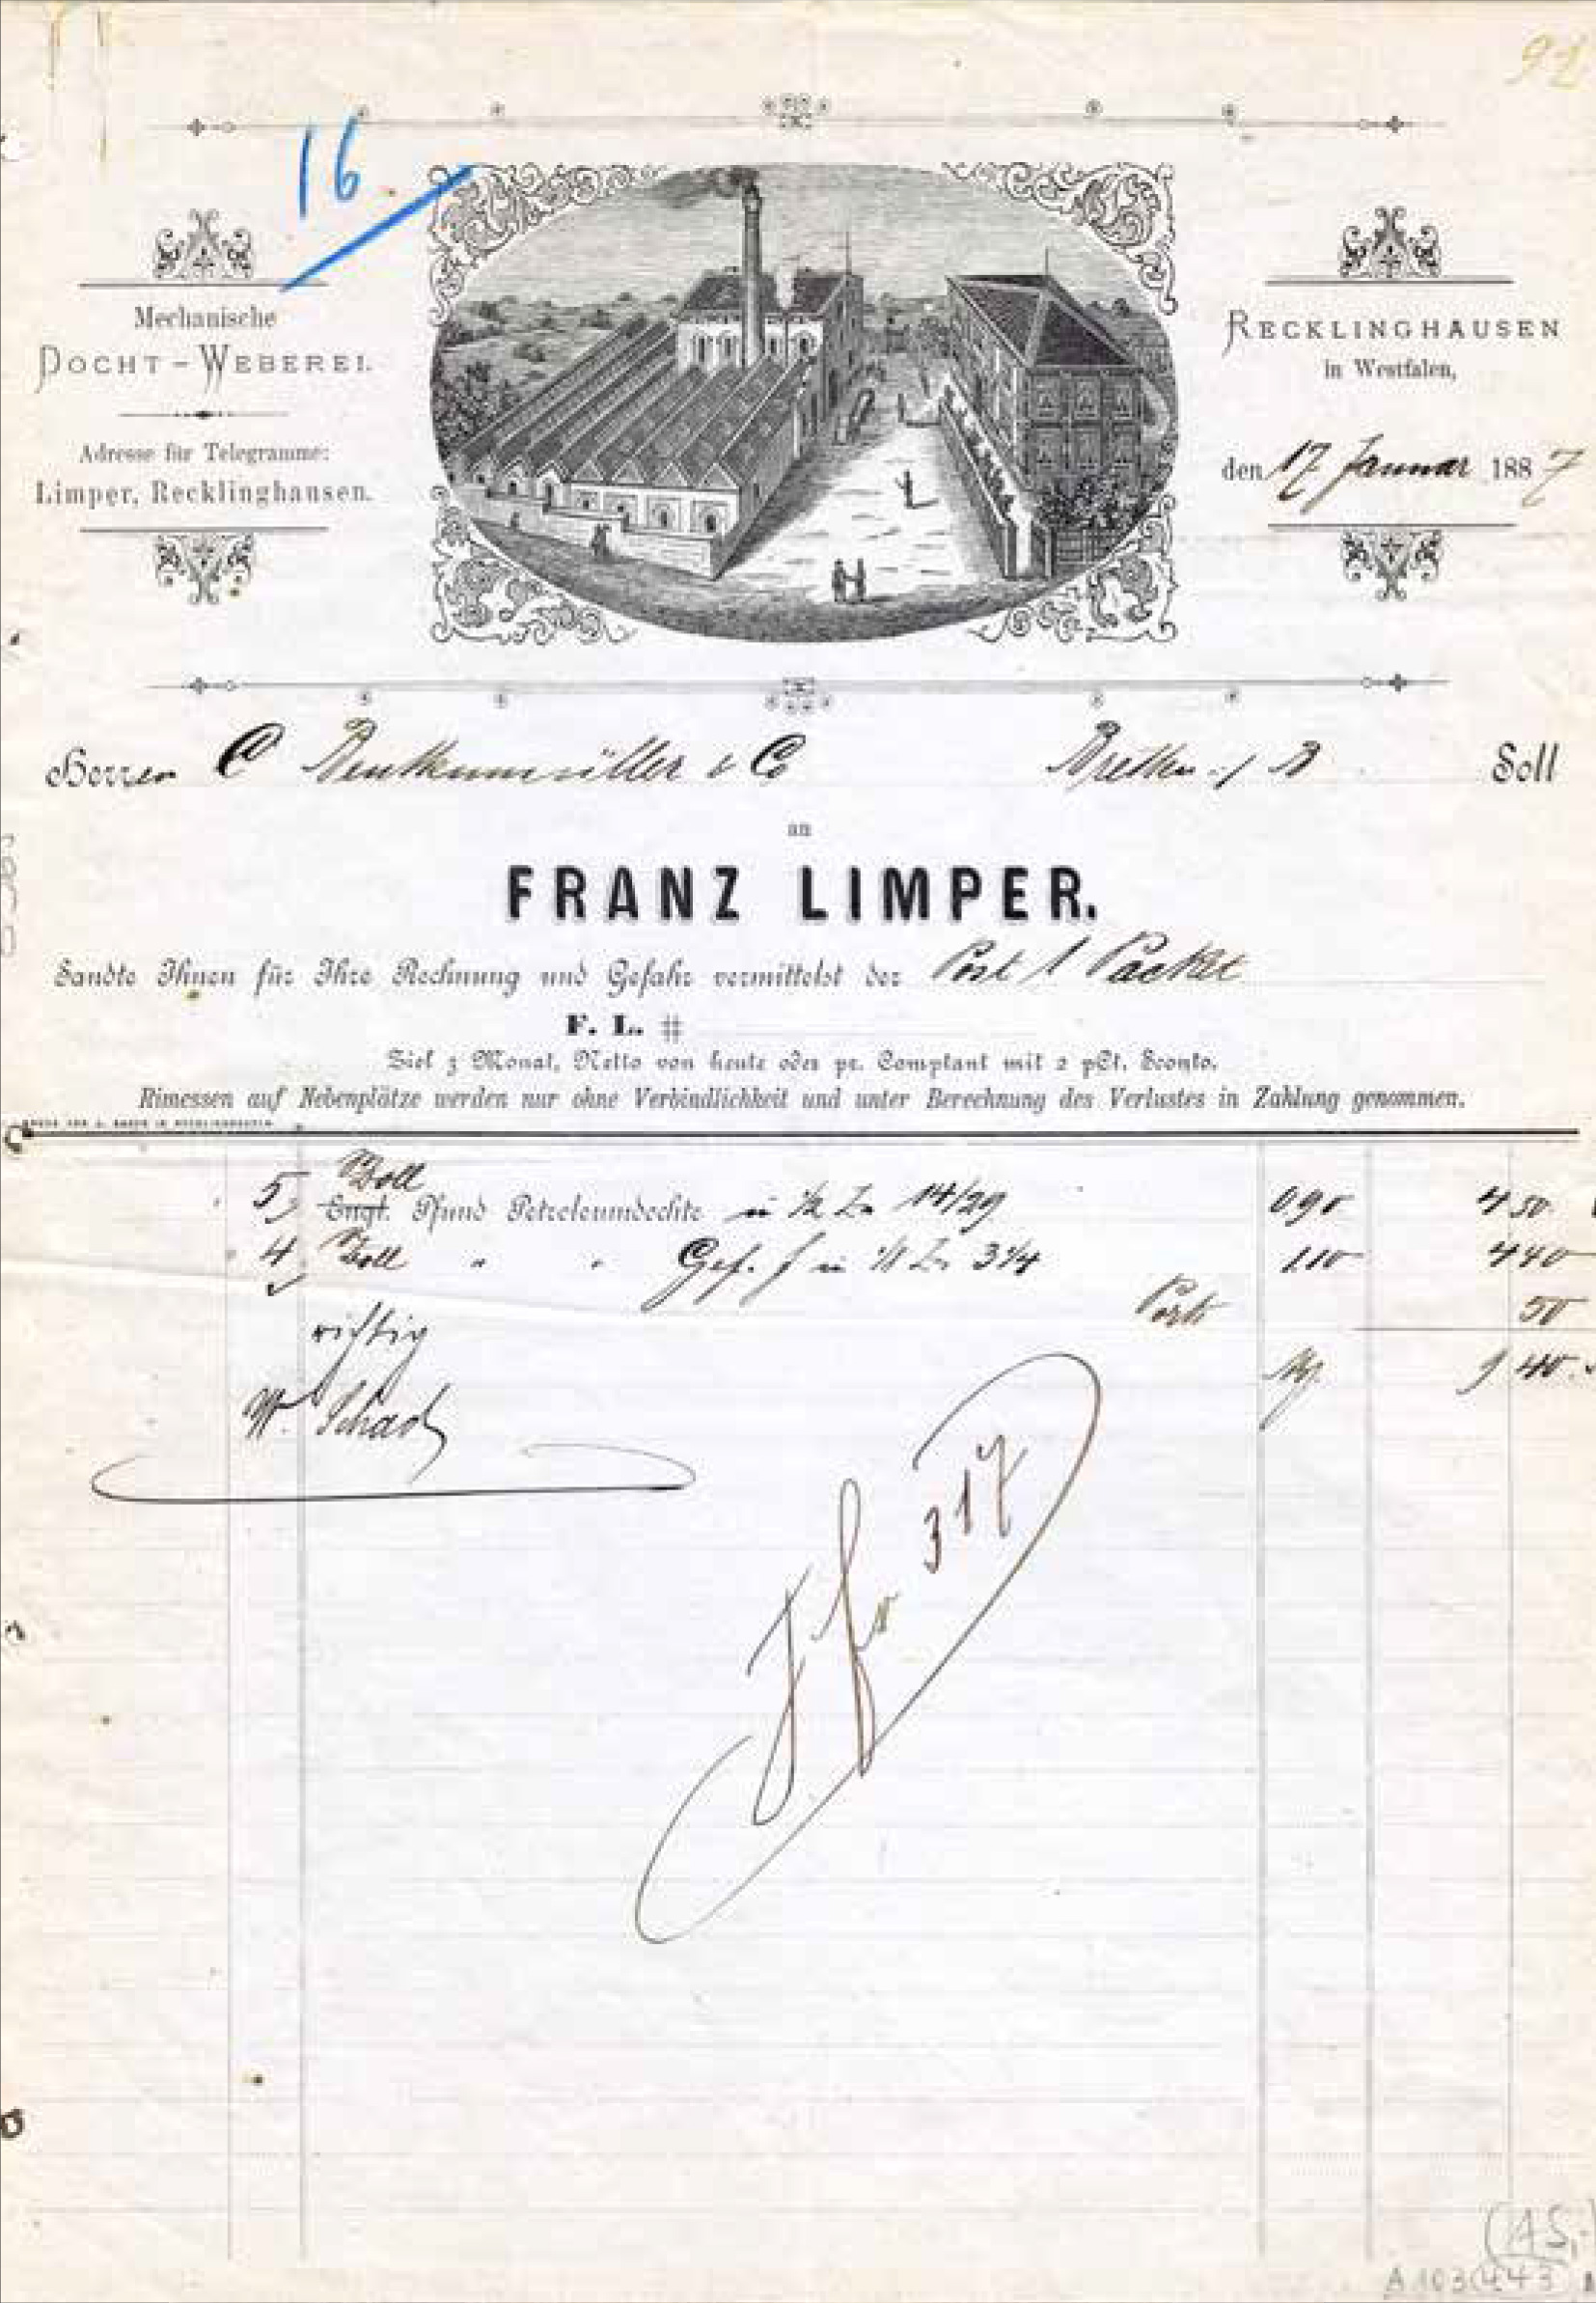 92
16
Mechanische
DOCHT-WEBEREI.
Adresse für Telegramme:
Limper, Recklinghausen.
RECKLINGHAUSEN
in Westfalen,
den 17 Januar 1887
Herren C Beuttenmüller & Co Bretten i/B Soll
an
FRANZ LIMPER.
Sandte Ihnen für Ihre Rechnung und Gefahr vermittelst der Post 1 Packet
F. L. #
Ziel 3 Monat, Netto von heute oder pr. Comptant mit 2 pCt. Sconto.
Rimessen auf Nebenplätze werden nur ohne Verbindlichkeit und unter Berechnung des Verlustes in Zahlung genommen.
Zoll
5 Engl. Pfund Petroleumdochte in 14/29 090 4 50
4 Zoll " " in 3 1/4 1.10 4 40
Porto 50
M. 9 40
richtig
W. Schad
317
(AS,-)
A 103(443